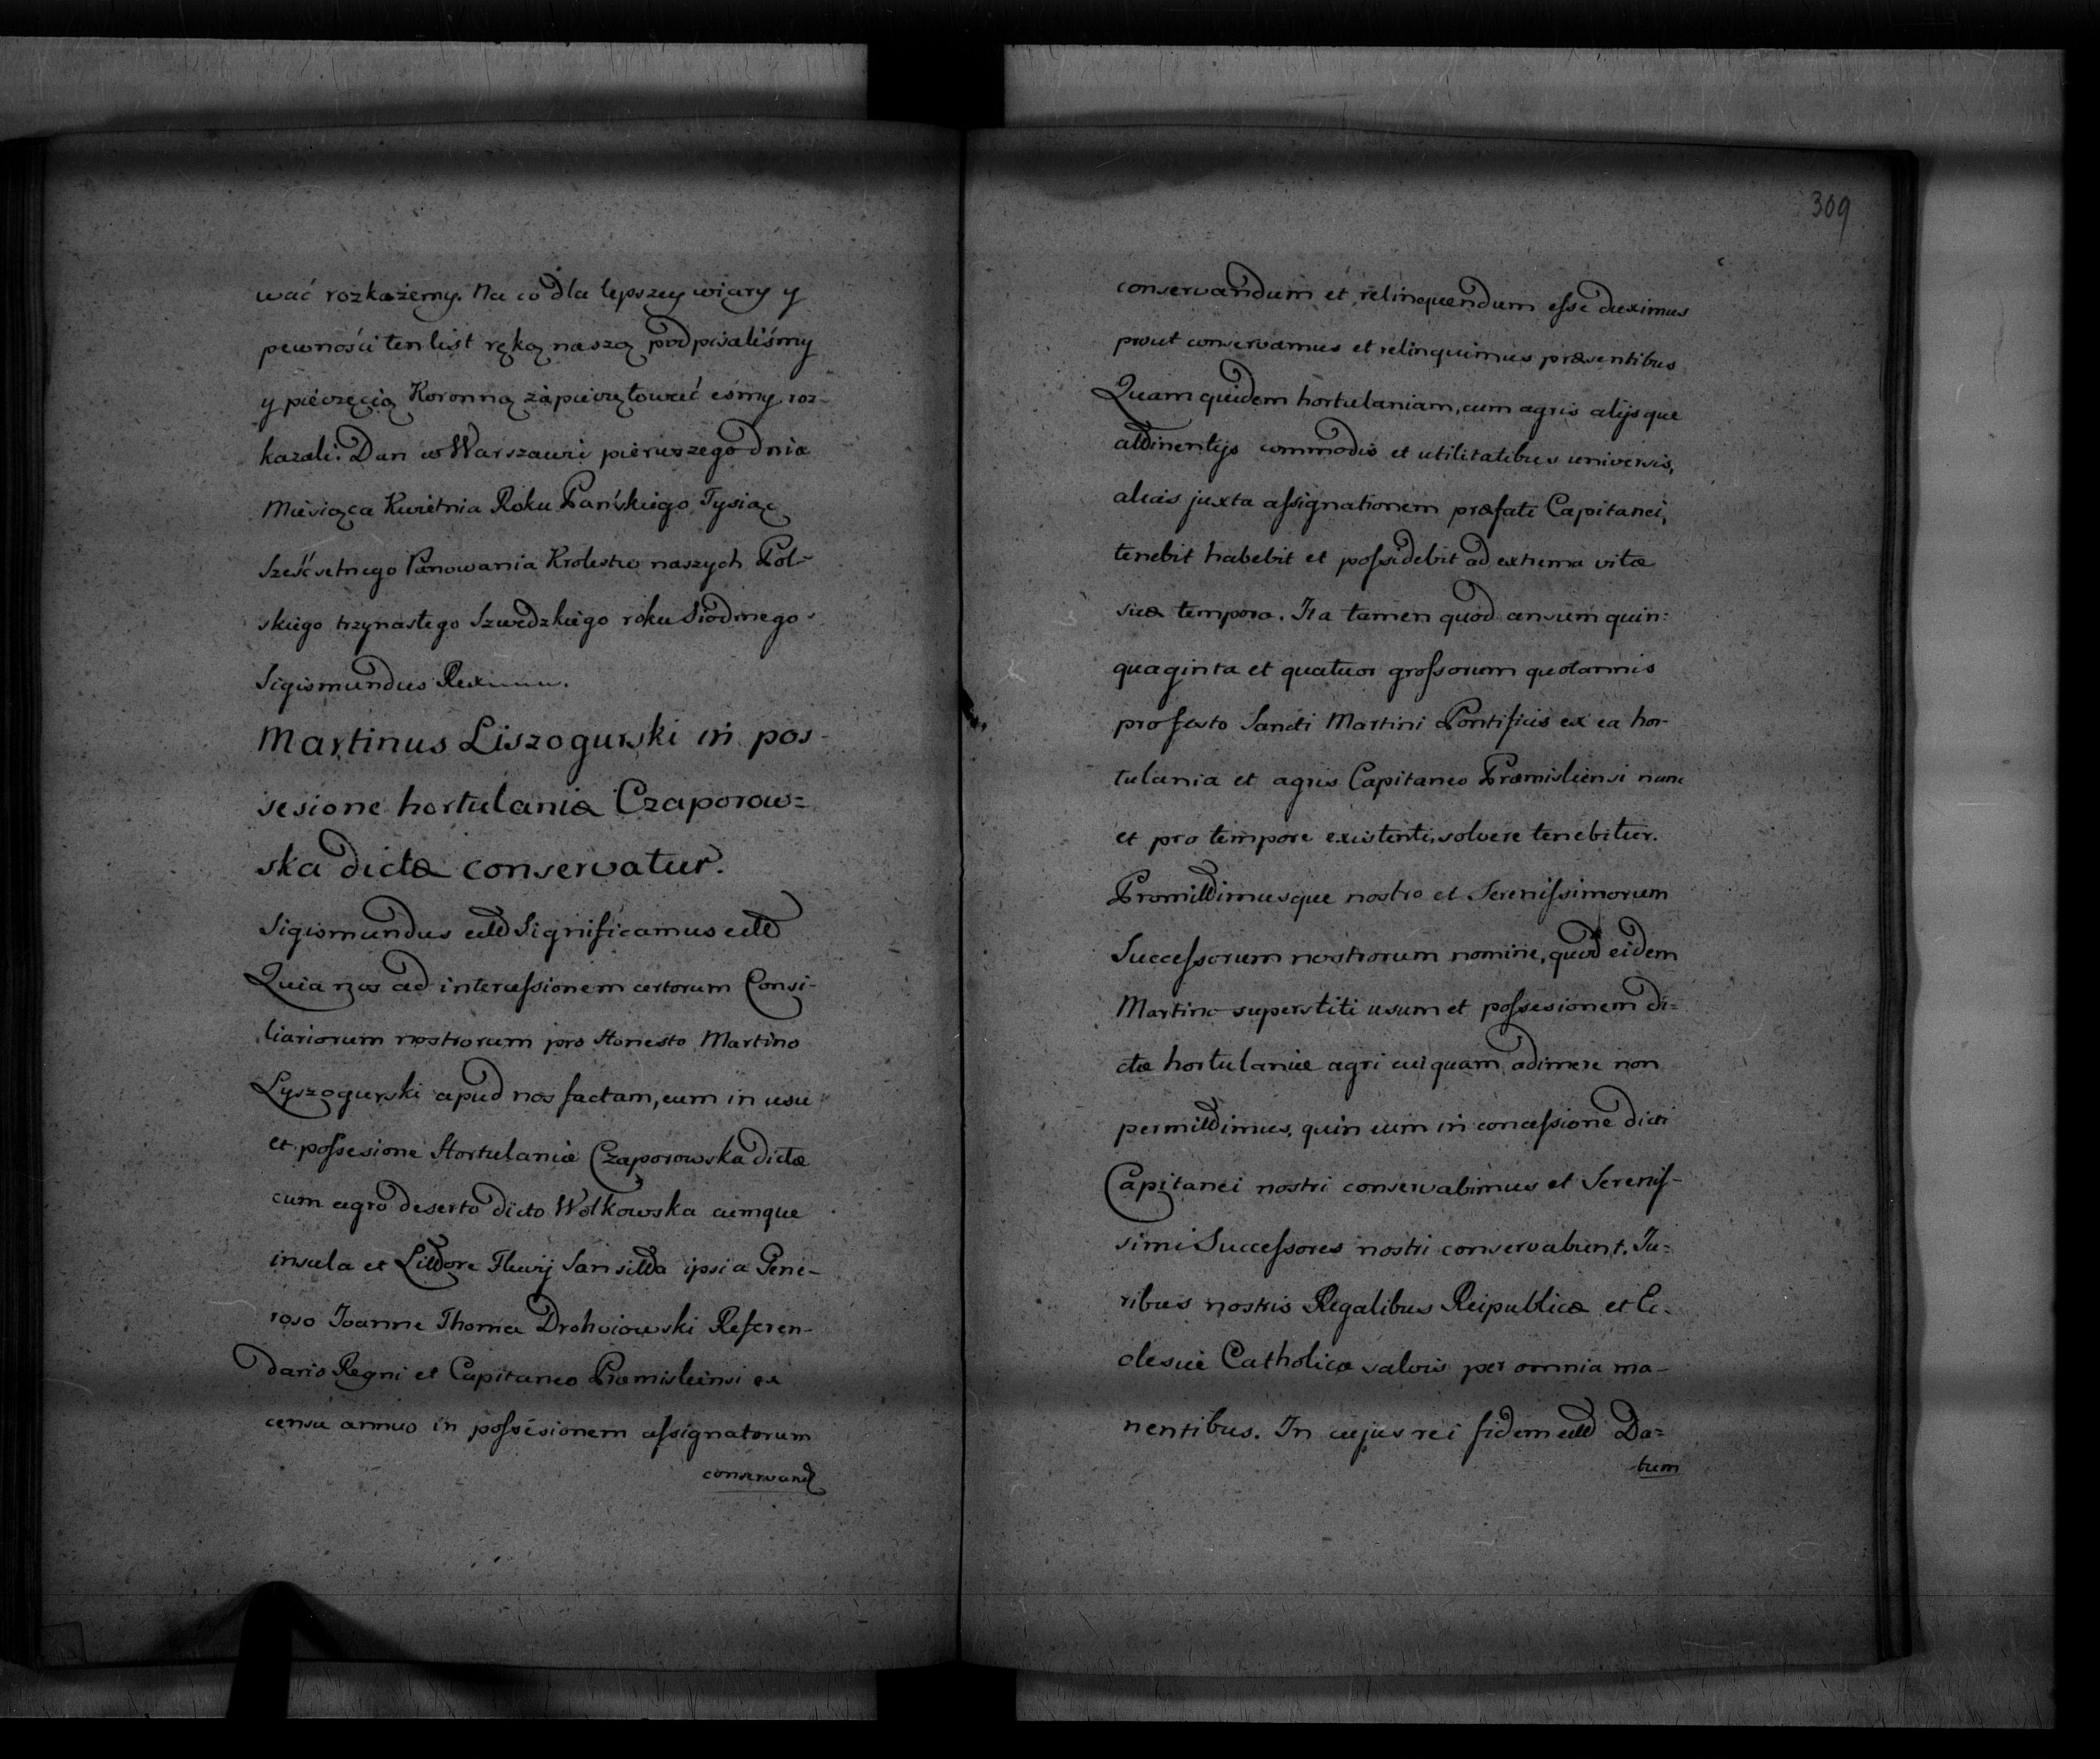 wać rozkażemy. Na co dla lepszey wiary y
pewności ten list ręką naszą podpisaliśmy
y pieczęcią Koronną zapieczętować eśmy roz-
kazali. Dan w Warszawi pierwszego Dnia
Miesiąca Kwietnia Roku Pańskiego Tysiąc
Sześćsetnego Panowania Krolestw naszych Pol-
skiego trzynastego Szwedzkiego roku Siodmego
Sigismundus Rex
Martinus Liszogurski in pos-
sesione hortulaniæ Czaporow=
ska dictæ conservatur.
Sigismundus ett Significamus ett
Quia nos ad intercessionem certorum Consi-
liariorum nostrorum pro Honesto Martino
Lyszogurski apud nos factam, eum in usu
et possesione Hortulaniæ Czaporowska dictæ
cum agro deserto dicto Wolkowska cumque
insula et Littore Fluvij San sitta ipsi a Gene-
roso Joanne Thoma Drohoiowski Referen-
dario Regni et Capitaneo Præmisliensi ex
censu annuo in possesionem assignatorum
conservand
309
conservandum et relinquendum esse duximus
prout conservamus et relinquimus præsentibus
Quam quidem hortulaniam, cum agris alijsque
attinentijs commodis et utilitatibus universis,
alias juxta assignationem præfati Capitanei,
tenebit habebit et possidebit ad extrema vitæ
suæ tempora. Ita tamen quod censum quin=
quaginta et quatuor grossorum quotannis
pro festo Sancti Martini Pontificis ex ea hor-
tulania et agris Capitaneo Præmisliensi nunc
et pro tempore existenti, solvere tenebitur.
Promittimusque nostro et Serenissimorum
Successorum nostrorum nomine, quod eidem
Martino superstiti usum et possesionem di=
ctæ hortulaniæ agri cuiquam adimere non
permittimus, quin eum in concessione dicti
Capitanei nostri conservabimus et Serenis-
simi Successores nostri conservabunt. Iu=
ribus nostris Regalibus Reipublicæ et Ec-
clesiæ Catholicæ salvis per omnia ma-
nentibus. In cujus rei fidem ett Da=
tum